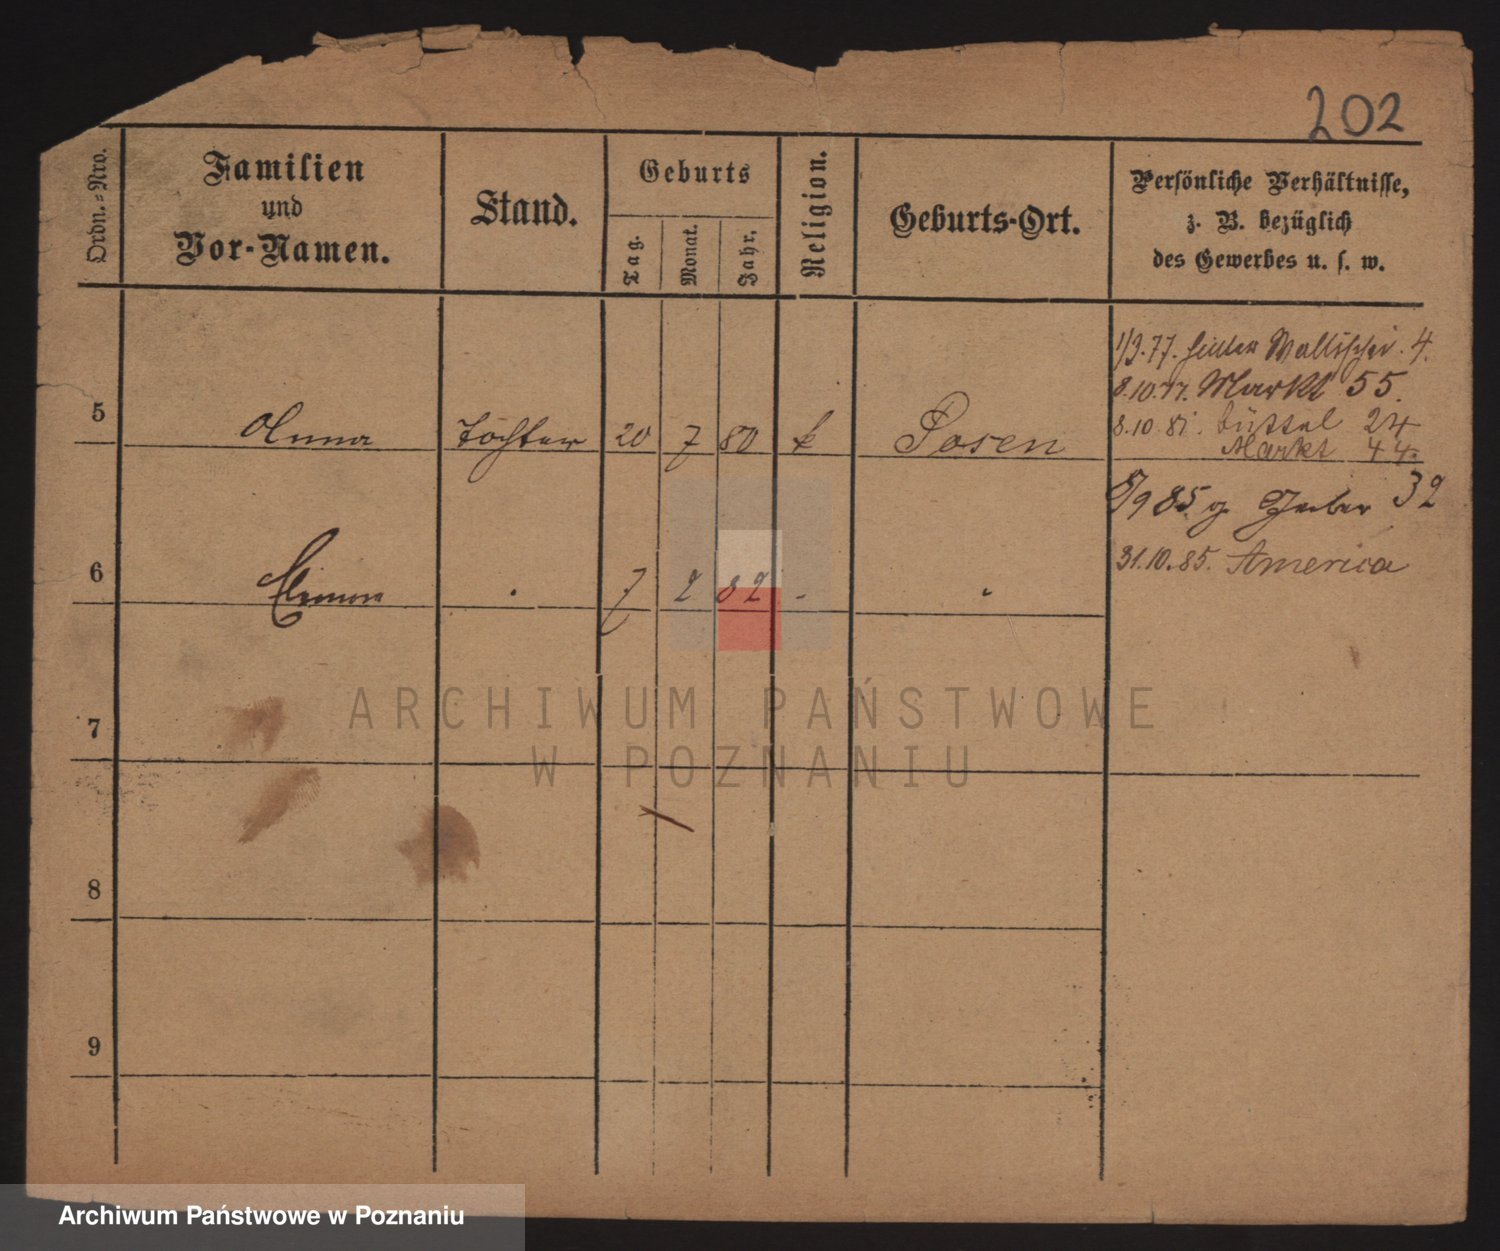 202
Ordn.-Nro.
Familien
und
Vor-Namen.
Stand.
Geburts
Tag.
Monat.
Jahr.
Religion.
Geburts-Ort.
Persönliche Verhältnisse,
z. B. bezüglich
des Gewerbes u. s. w.
1/3.77. Wallischei. 4.
8.10.77. Markt 55.
5 Anna Tochter 20 7 80 k Posen
8.10.81. Büttel 24
Markt 44
6 7 2 82
8/9 85 g 32
31.10.85. America
7
8
9
ARCHIWUM PAŃSTWOWE
W POZNANIU
Archiwum Państwowe w Poznaniu